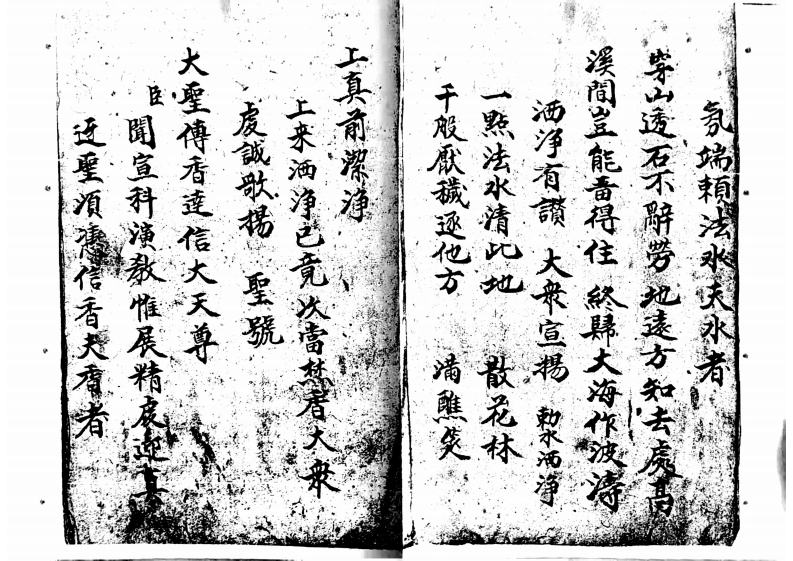 氛端賴法水夫水者
穿山透石不辭勞地遠方知去處高
溪間豈能畱得住 終歸大海作波濤
洒淨有讚 大衆宣揚 勅水洒淨
一點法水清此地 散花林
千股厭穢逐他方 滿醮筵
上真前潔淨
上来洒淨已竟次當焚香大衆
虔誠歌揚 聖號
大聖傳香達信大天尊
臣聞宣科演教惟展精虔迎真
迓聖須憑信香夫香者